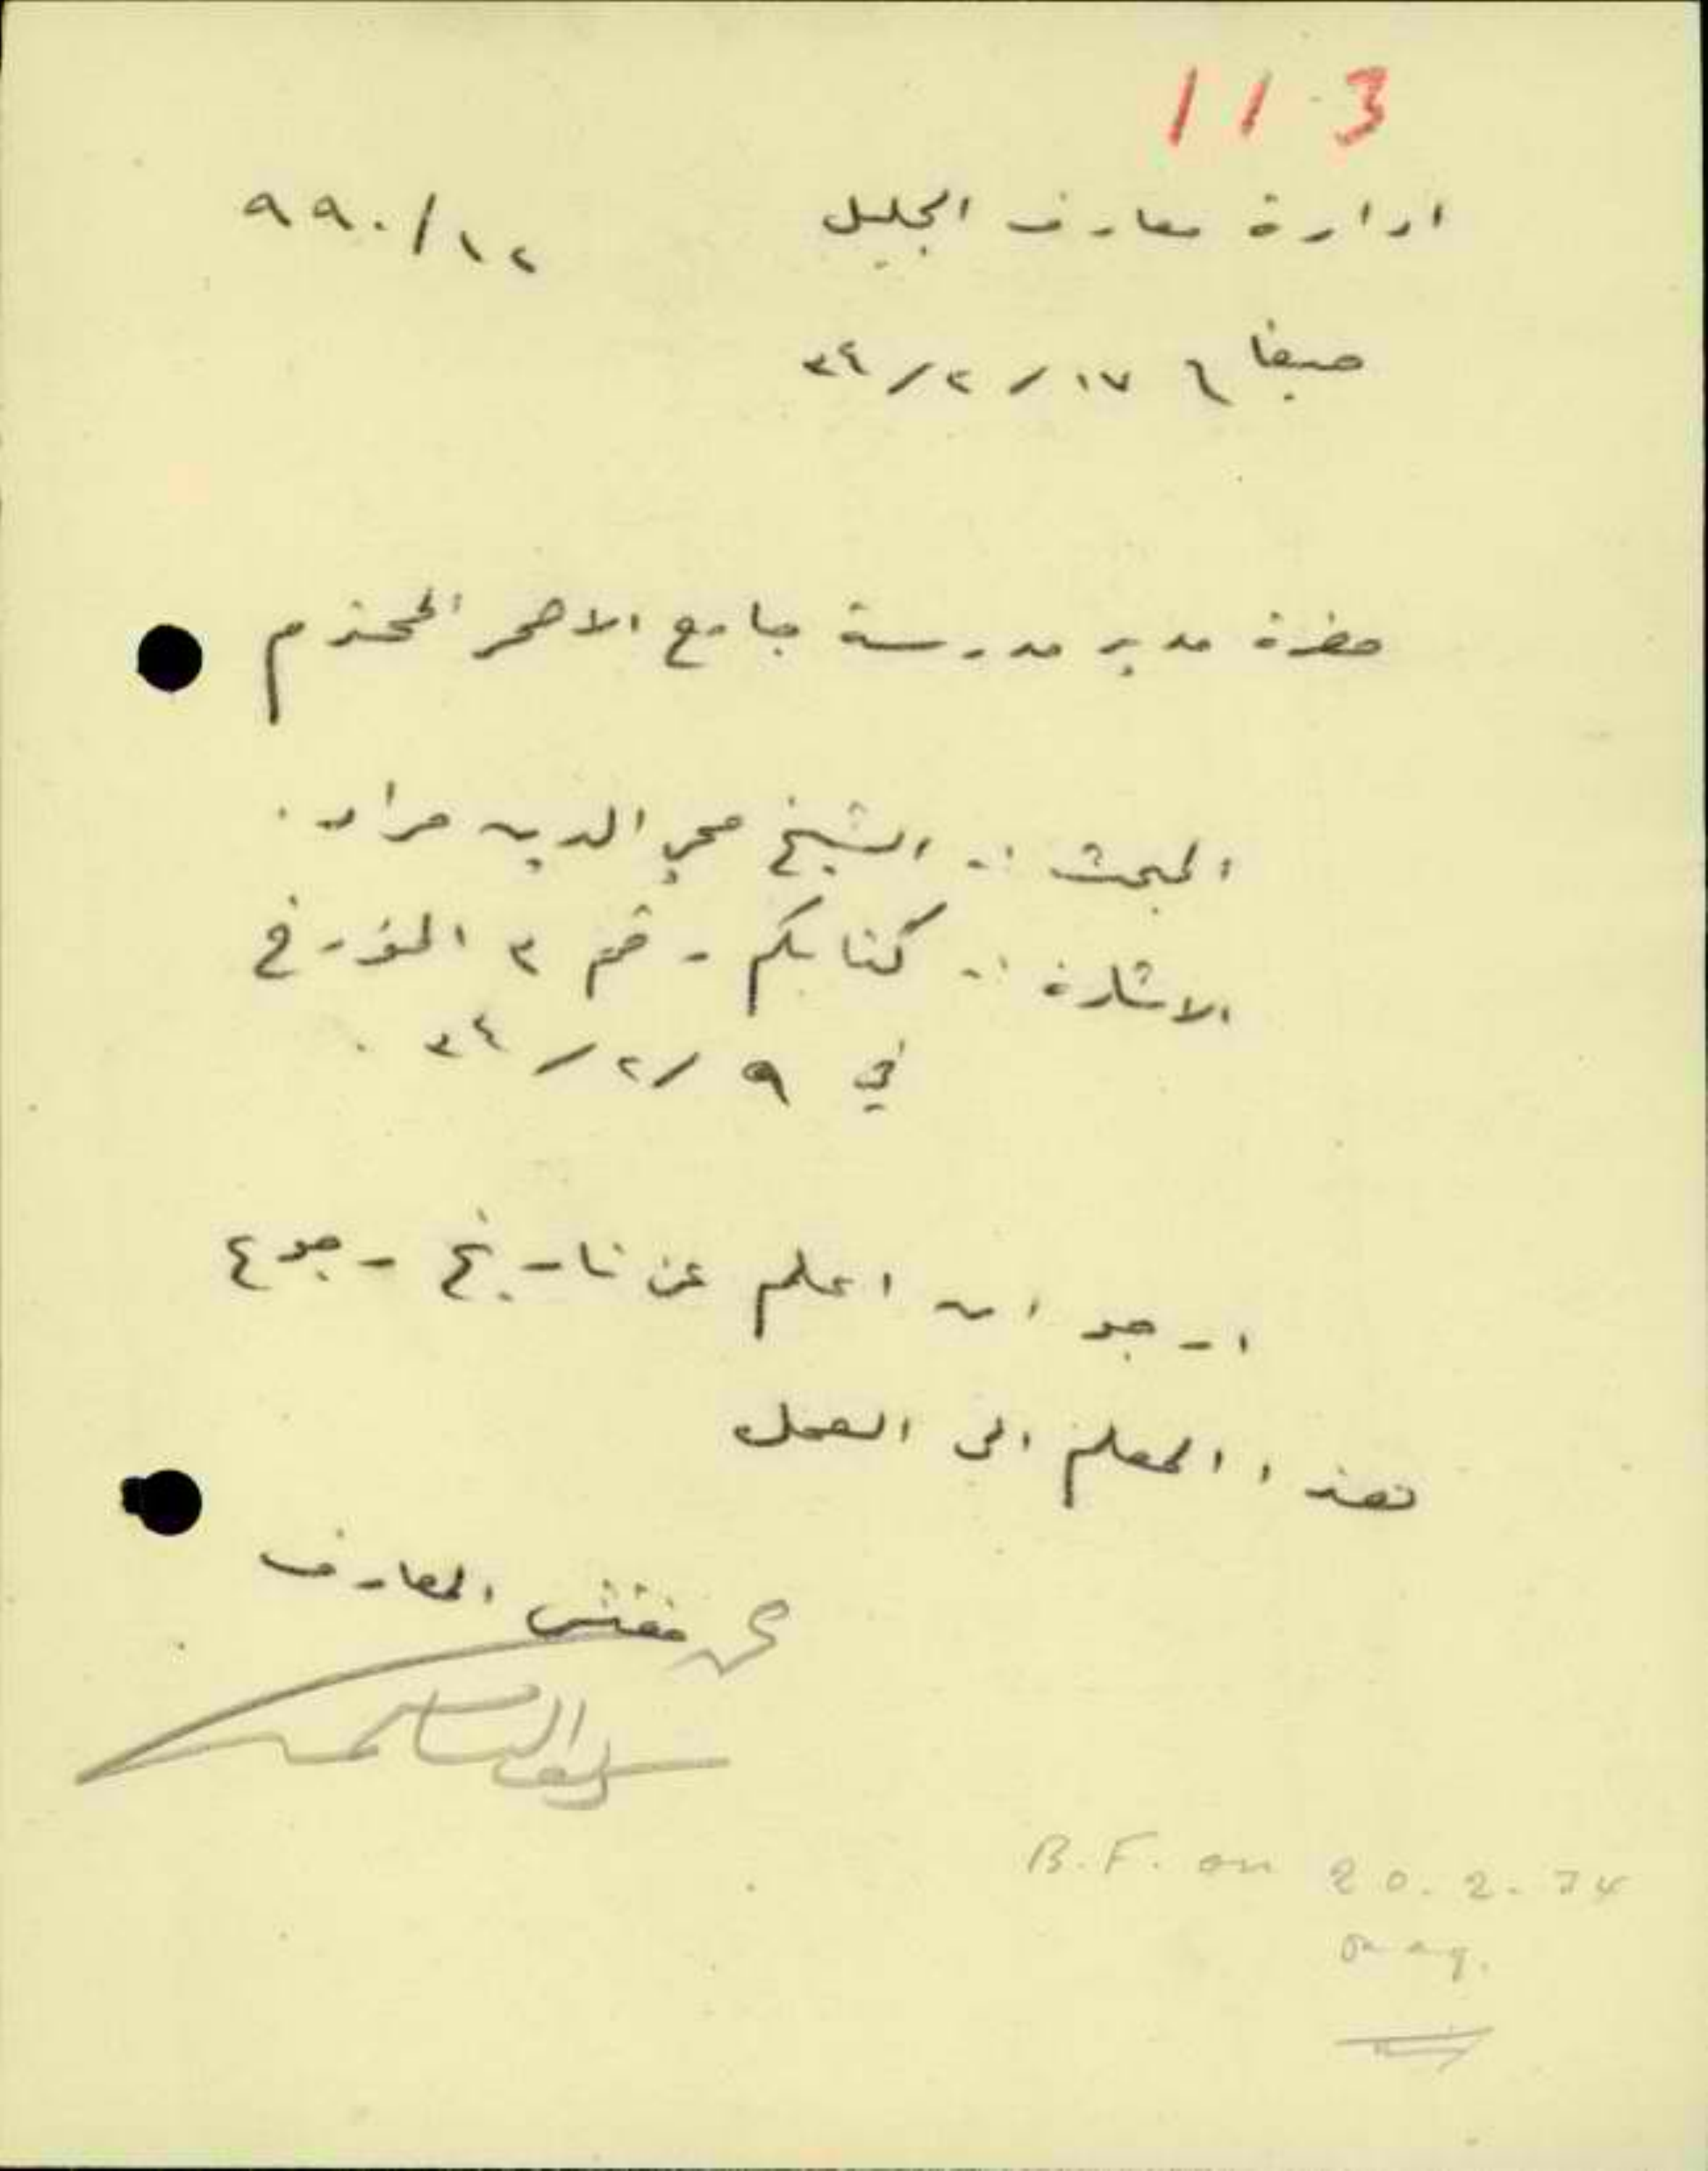 113
ادارة معارف الجليل ٩٩٠/١٢
صيفا ٦ ١٧/٢/٣٤
حضرة مدير مدرسة جامع الاحمر المحترم
المبحث :- الشيخ محي الدين مراد .
الاشارة :- كتابكم رقم ٣ المؤرخ
في ٩/٢/٣٤ .
ارجو ان اعلم عن تاريخ رجوع
هذا المعلم الى العمل
مفتش المعارف
B.F. on 20.2.34